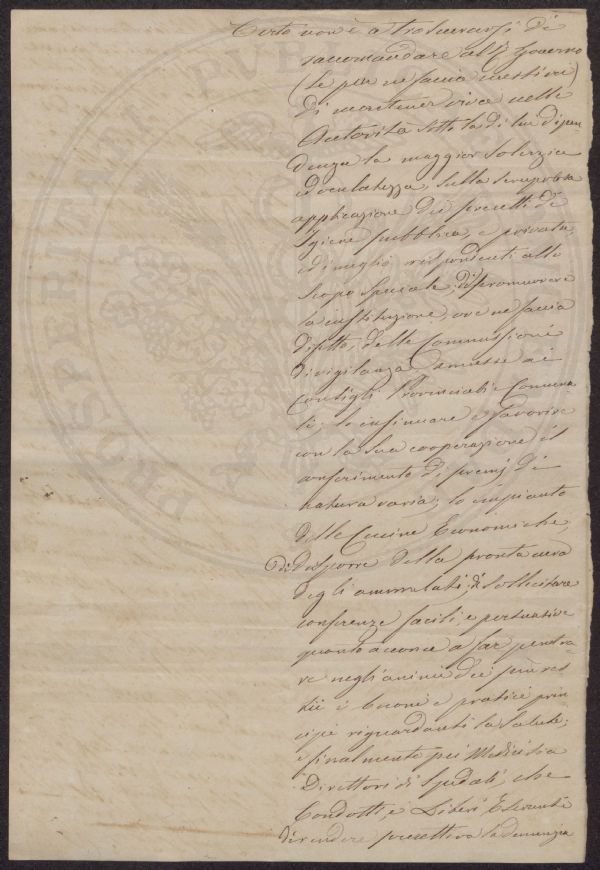 Certo non è a trascurarsi di
raccomandare all' R. Governo
(Se pur ne faccia mestieri)
di mantener viva nelle
Autorità sotto la di lui dipen-
denza la maggior solerzia
ed oculatezza, sulla scrupolosa
applicazione dei precetti di
Igiene pubblica, e privata,
ed i meglio rispondenti allo
scopo speciale; di promuovere
la instituzione, ove ne faccia
difetto, delle Commissioni
di vigilanza, annesse ai
Consigli Provinciali e Comuna-
li; lo insinuare e favorire
con la sua cooperazione il
conferimento di premj di
natura varia; lo impianto
delle Cucine Economiche,
di disporre della pronta cura
degli ammalati; di sollecitare
conferenze facili, e persuasive
quanto acconce a far penetra-
re negli animi dei più ret-
tii i buoni e pratici prin-
cipii riguardanti la salute;
e finalmente pei Medici sia
Direttori di Spedali, che
Condotti, e Liberi Esercenti
di rendere precettiva la denunzia